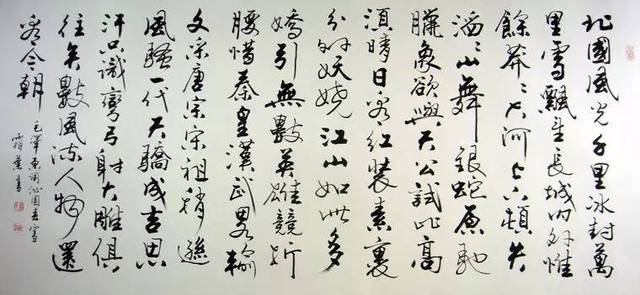 北國風光千里冰封萬
里雪飄望長城內外惟
餘莽莽大河上下頓失
滔滔山舞銀蛇原馳
臘象欲與天公試比高
須晴日看紅裝素裹
分外妖嬈江山如此多
嬌引無數英雄競折
腰惜秦皇漢武略輸
文采唐宗宋祖稍遜
風騷一代天驕成吉思
汗只識彎弓射大雕俱
往矣數風流人物還
看今朝
毛澤東詞沁園春雪
書